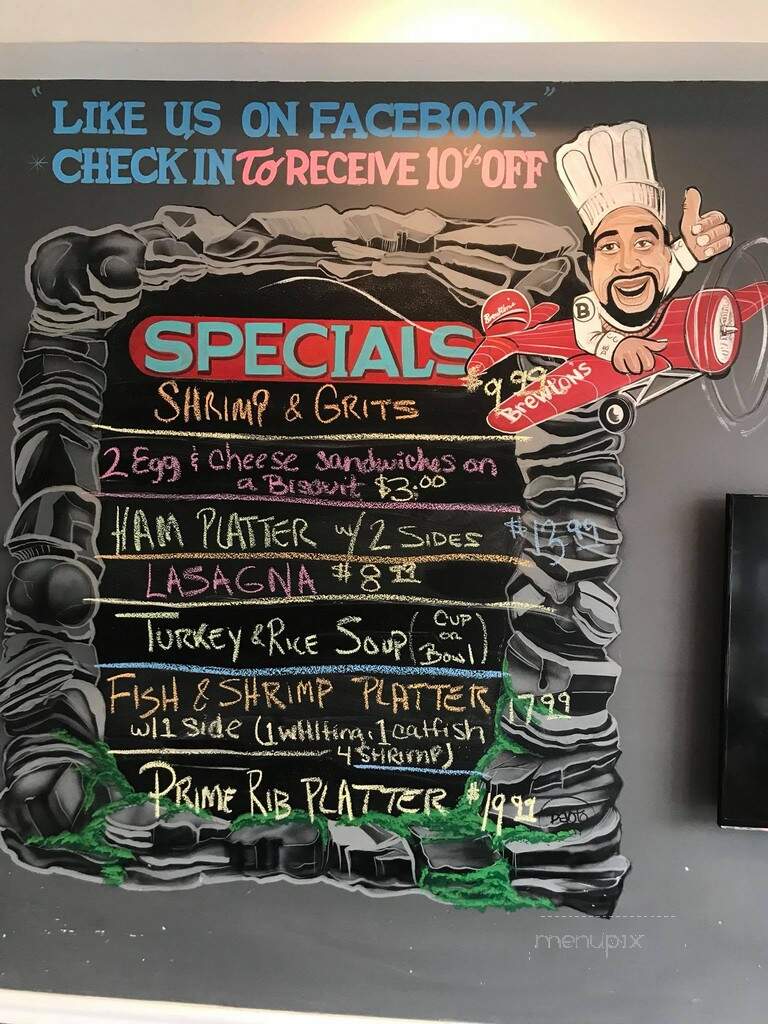 "LIKE US ON FACEBOOK"
*CHECK IN TO RECEIVE 10% OFF
SPECIALS
B
Brewtons
$9.99
SHRIMP & GRITS
2 Egg & Cheese Sandwiches on
a Biscuit $3.00
HAM PLATTER w/ 2 SIDES $13.99
LASAGNA $8.99
TURKEY & RICE SOUP (CUP
OR
BOWL)
FISH & SHRIMP PLATTER 17.99
w/1 Side (1 whiting, 1 catfish
4 SHRIMP)
PRIME RIB PLATTER $19.99
menupix